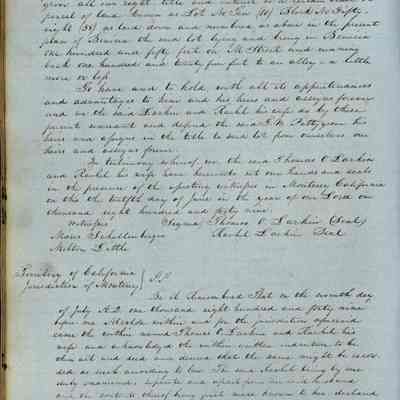 give all our right title and interest to a certain
parcel of land known as Lot No Ten (10) Block No Fifty
eight (58) as laid down and numbered as above in the present
plan of Benicia the said lot lying and being in Benicia
one hundred and fifty feet on M Street and running
back one hundred and twenty five feet to an alley a little
more or less
To have and to hold with all its appurtenances
and advantages to him and his heirs and assigns forever
and we the said Larkin and Rachel his wife do by these
presents warrant and defend the said J. W. Pettygrove his
heirs and assigns in the title to said lot from ourselves our
heirs and assigns forever
In testimony whereof we the said Thomas O Larkin
and Rachel his wife have hereunto set our hands and seals
in the presence of the opositing witnesses in Monterey California
on this the twelfth day of June in the year of our Lord one
thousand eight hundred and forty nine
Witnesses Signed Thomas O Larkin (Seal)
Moses Schallenberger Rachel Larkin Seal
Milton Little
Territory of California
Jurisdiction of Monterey } S.S.
Be it Remembered That on the day
of July A.D. one thousand eight hundred and forty nine
before me within and for the jurisdiction aforesaid
came the within named Thomas O Larkin and Rachel his
wife and acknowledged the within written indenture to be
their act and deed and desired that the same might be recor-
ded as such according to law. The said Rachel being by me
duly examined, separate and apart from her said husband
and the contents thereof being first made known to her declared